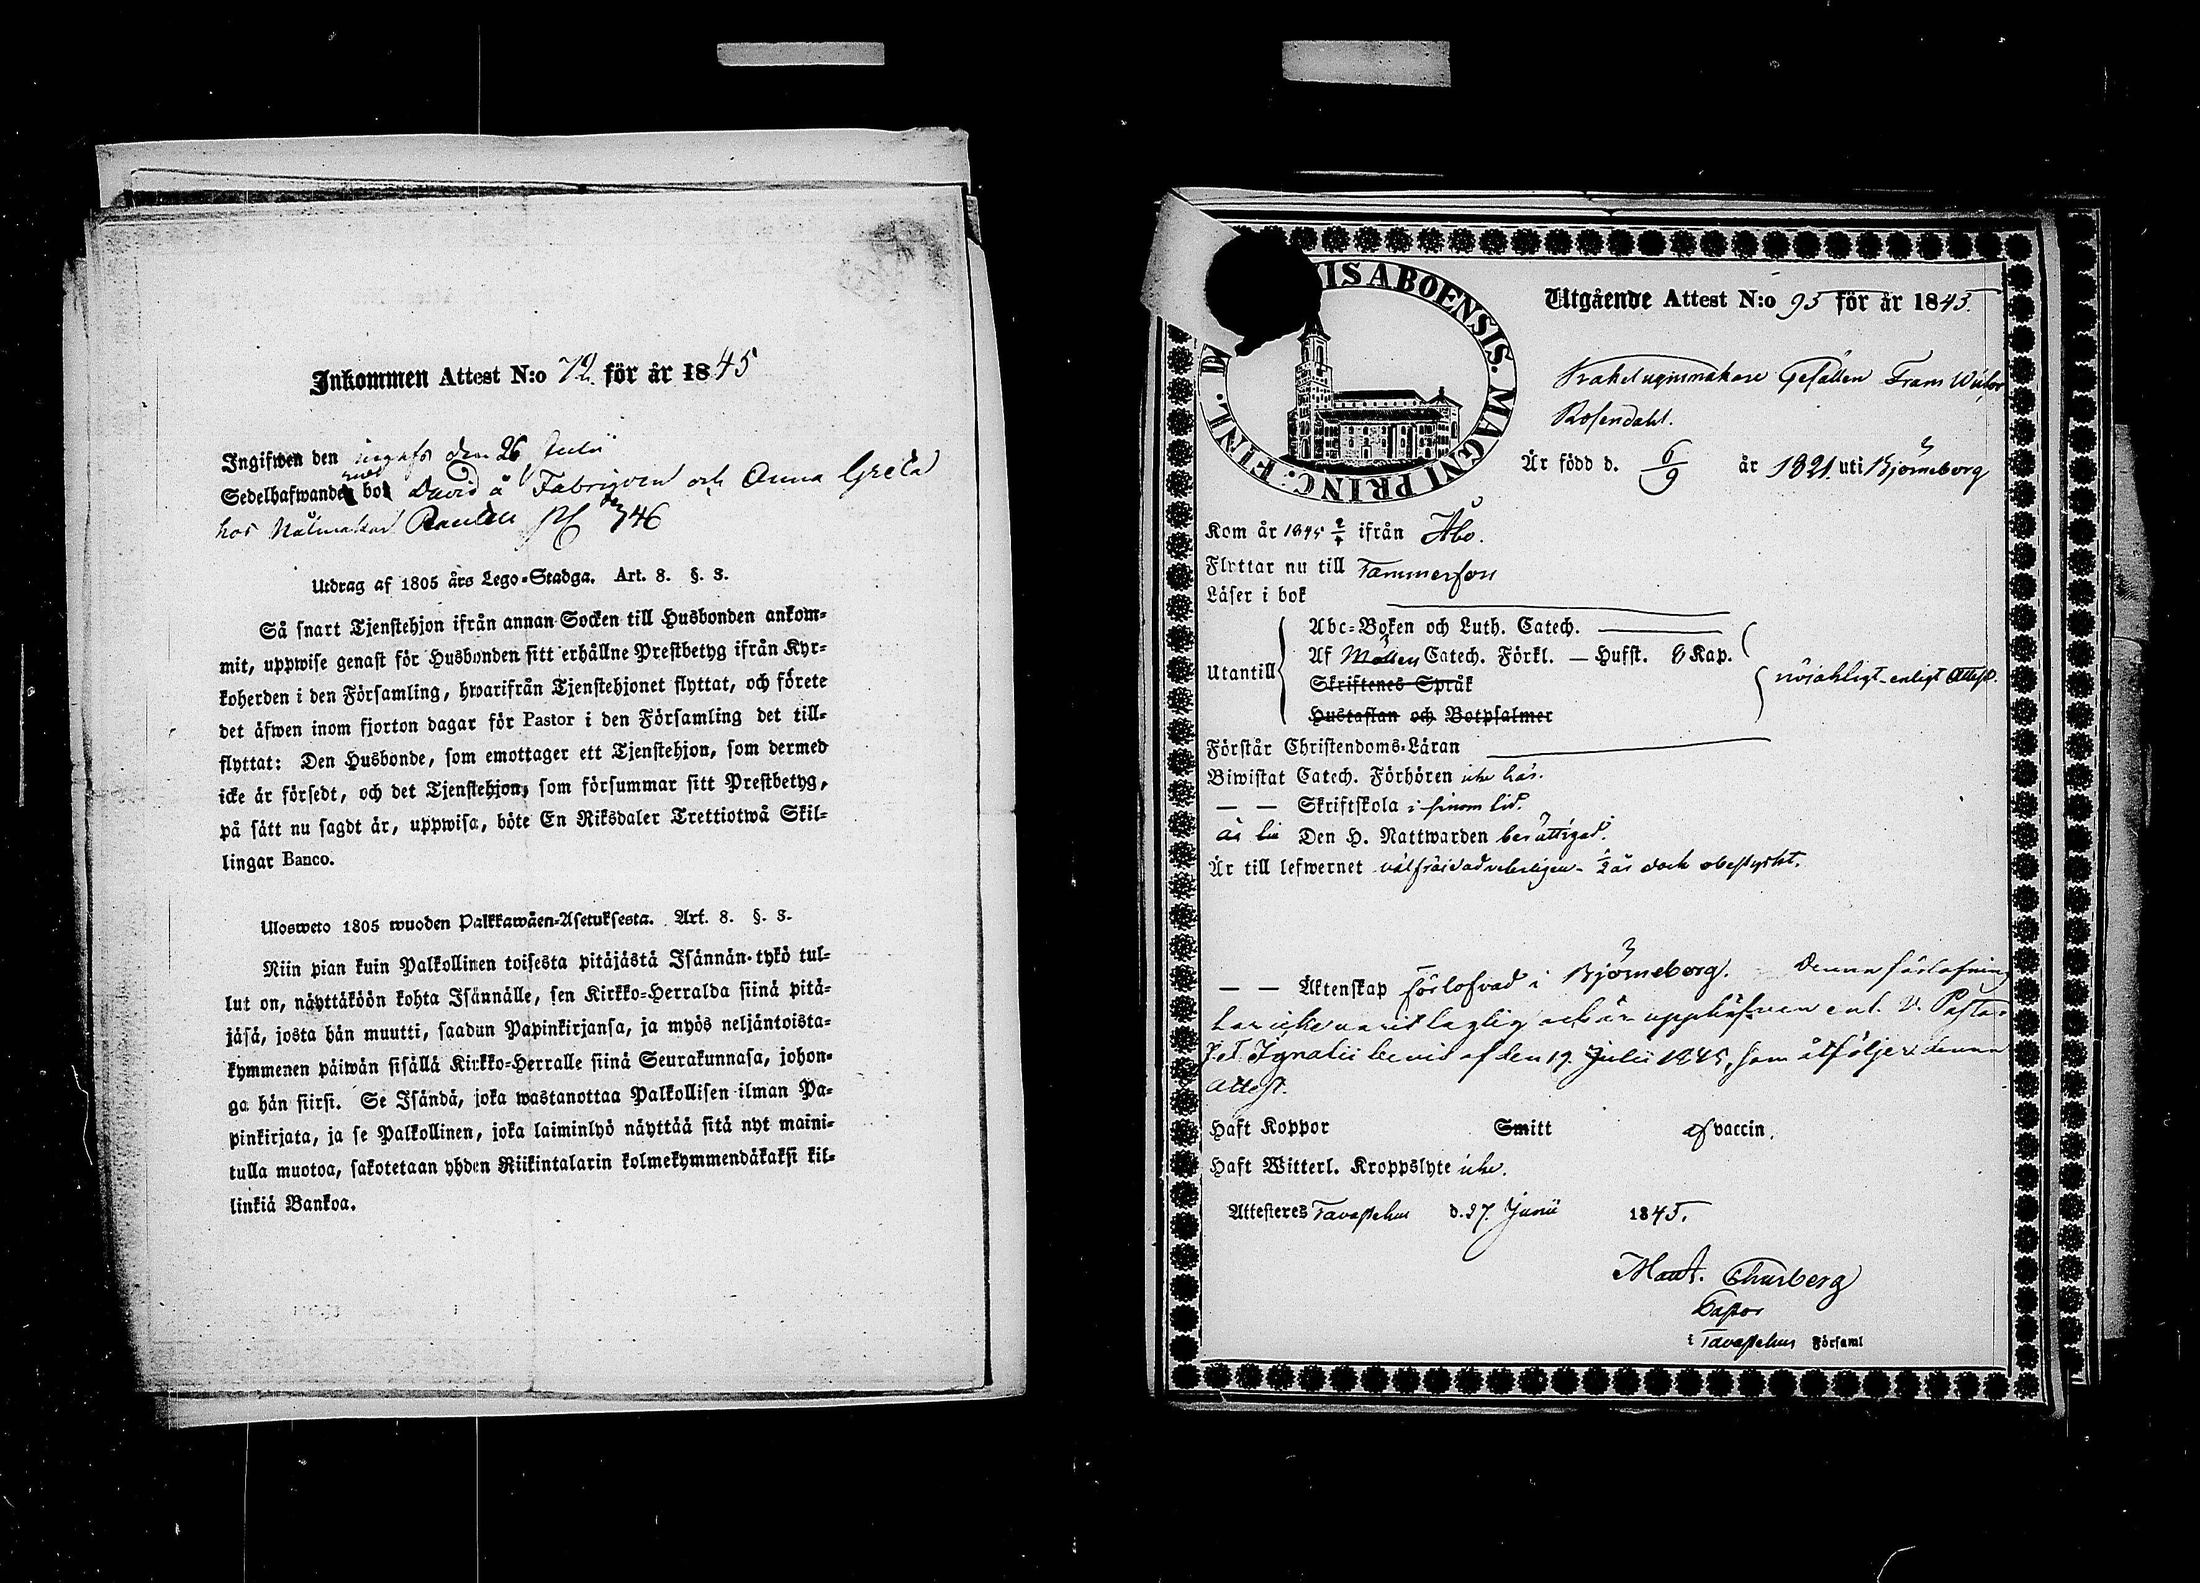 Inkommen Attest N:o 72 för år 1845
Ingifwen den ingafs den 26 Julii
Sedelhafwanden bor David å Fabriquen och Anna Greta
hos Nålmakar
Utdrag af 1805 års Lego-Stadga. Art. 8. §. 3.
Så snart Tjenstehjon ifrån annan Socken till Husbonden ankom-
mit, uppwise genast för Husbonden sitt erhållne Prestbetyg ifrån Kyr-
koherden i den Församling, hwarifrån Tjenstehjonet flyttat, och förete
det äfwen inom fjorton dagar för Pastor i den Församling det till-
flyttat: Den Husbonde, som emottager ett Tjenstehjon, som dermed
icke är försedt, och det Tjenstehjon, som försummar sitt Prestbetyg,
på sätt nu sagdt är, uppwisa, böte En Riksdaler Trettiotwå Skil-
lingar Banco.
Ulosweto 1805 wuoden Palkkawäen-Asetuksesta. Art. 8. §. 3.
Niin pian kuin Palkollinen toisesta pitäjästä Isännän tykö tul-
lut on, näyttäköön kohta Isännälle, sen Kirkko-Herralda siinä pitä-
jäsä, josta hän muutti, saadun Papinkirjansa, ja myös neljäntoista-
kymmenen päiwän sisällä Kirkko-Herralle siinä Seurakunnasa, johon-
ga hän siirsi. Se Isändä, joka wastanottaa Palkollisen ilman Pa-
pinkirjata, ja se Palkollinen, joka laiminlyö näyttää sitä nyt maini-
tulla muotoa, sakotetaan yhden Riikintalarin kolmekymmendäkaksi kil-
linkiä Bankoa.
IS ABOENSIS. MAGNI PRINC: FINL. D
Utgående Attest N:o 95 för år 1845.
Kakelugnsmakare Gesällen Frans Wictor
Rosendahl.
Är född d. 6/9 år 1821 uti Björneborg
Kom år 1845 ifrån Åbo.
Flyttar nu till Tammerfors
Läser i bok
Utantill
Abc-Boken och Luth. Catech.
Af Möllers Catech. Förkl. — Husst. 6 Kap.
Skriftenes Språk
Hustaflan och Botpsalmer
nöjaktligt enligt Attest.
Förstår Christendoms-Läran
Biwistat Catech. Förhören icke här.
— — Skriftskola i sinom tid.
är till Den H. Nattwarden berättigad.
Är till lefwernet välfräjdad veterligen - 1/2 år dock obestyrkt.
— — Äktenskap förlofvad i Björneborg. Denna förlofning
har icke varit laglig och är upphäfven enl. V. Pastor
Ignatii bevis af den 19 Julii 1845, som åtföljer denna
Attest.
Haft Koppor Smitt af vaccin.
Haft Witterl. Kroppslyte icke.
Attesteres Tavastehus d. 27. Junii 1845.
Churberg
Pastor
i Tavastehus Församl